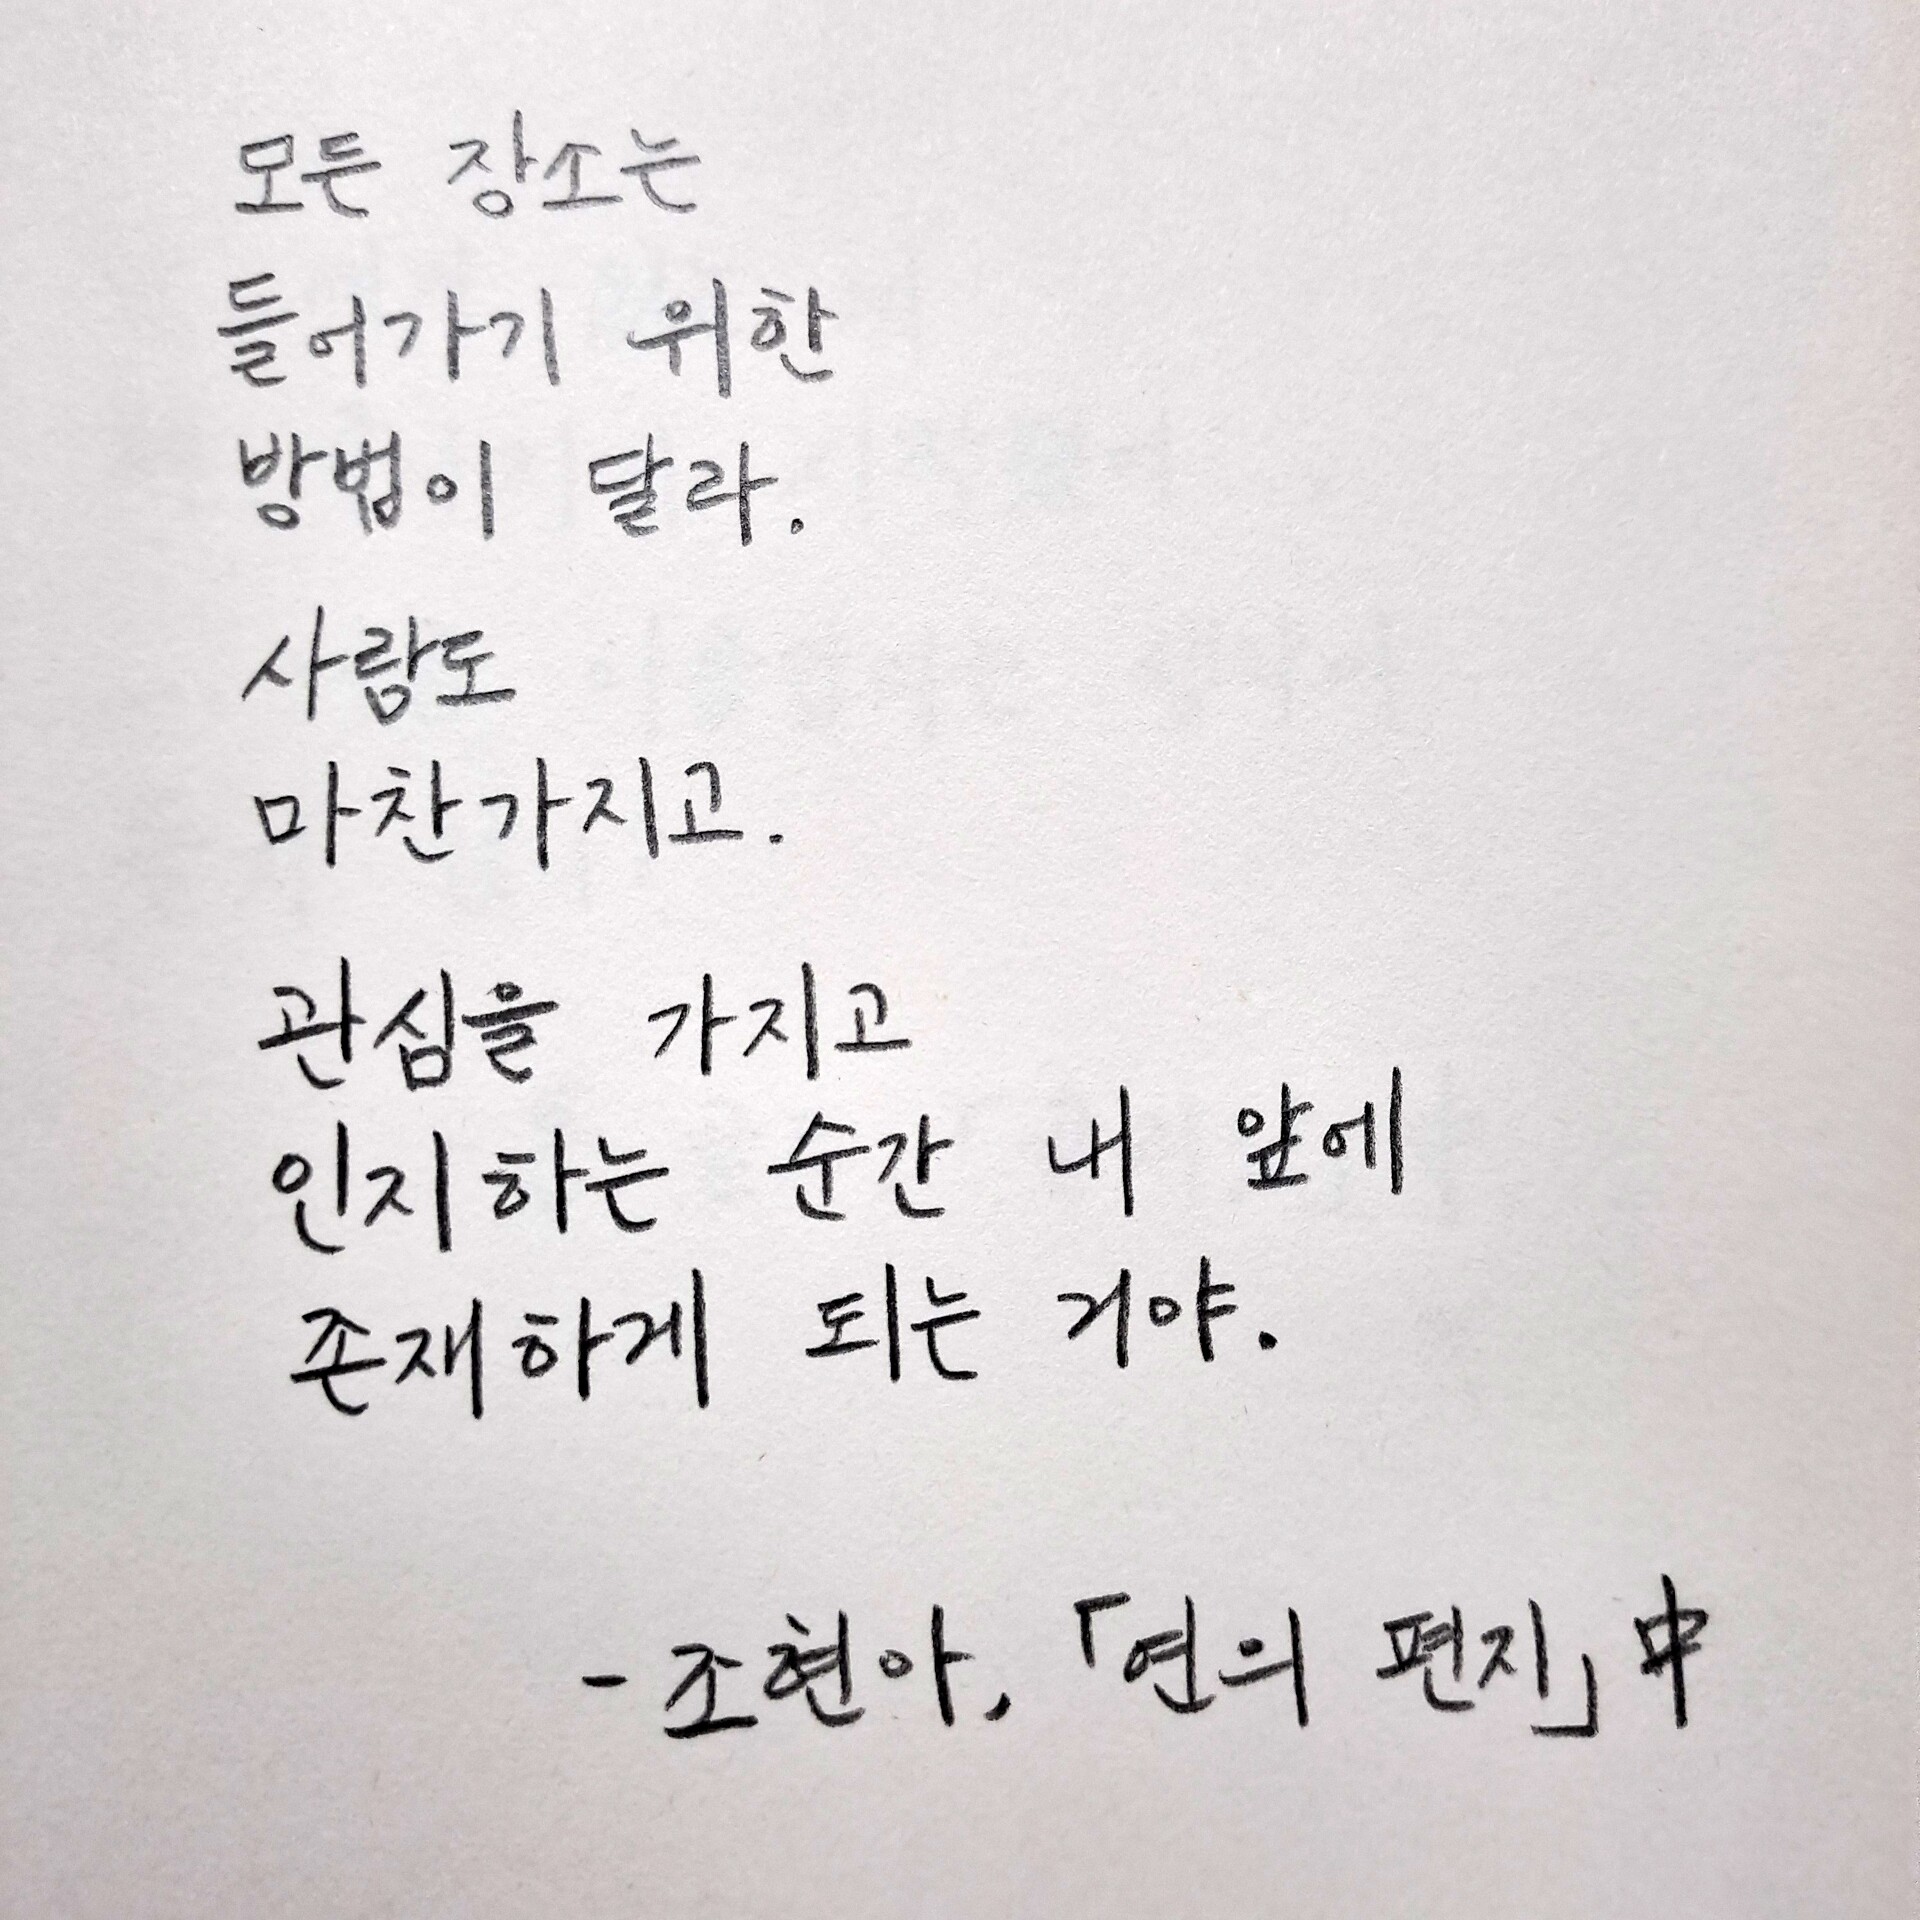 모든 장소는
들어가기 위한
방법이 달라.
사람도
마찬가지고.
관심을 가지고
인지하는 순간 내 앞에
존재하게 되는 거야.
- 조현아, 「연의 편지」 中